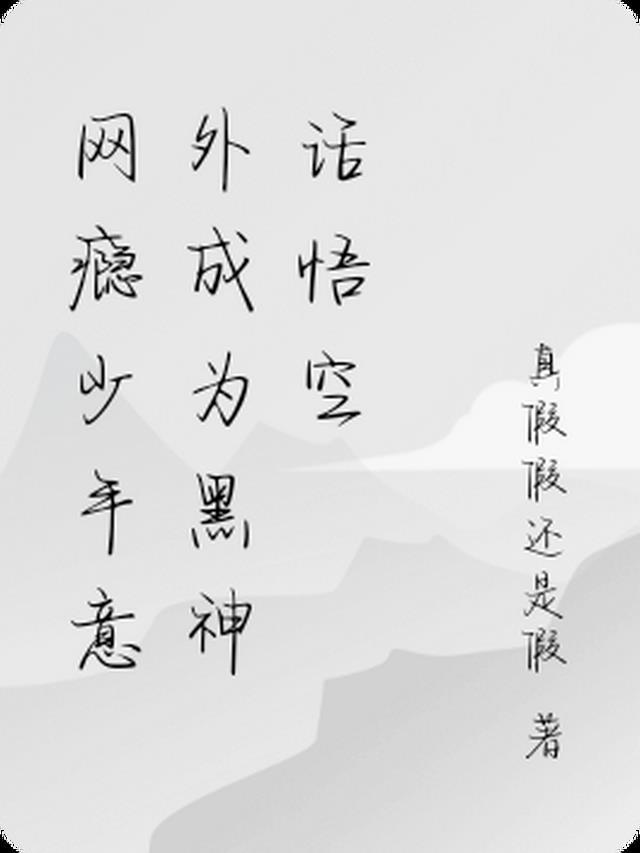 网瘾少年意
外成为黑神
话悟空
真假假还是假 著